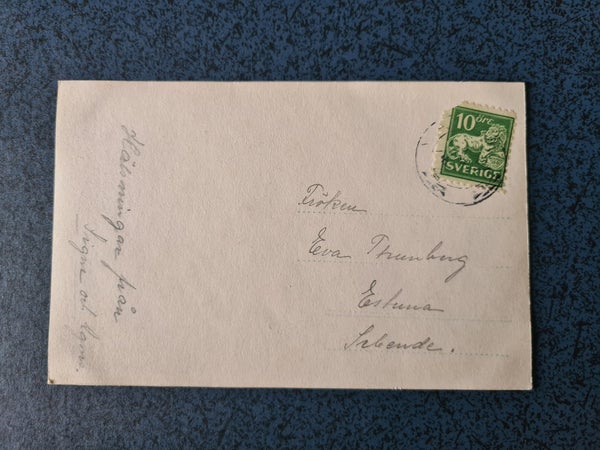 Hälsningar från
Signe och
10 öre
SVERIGE
Fröken
Eva Thunberg
Estuna